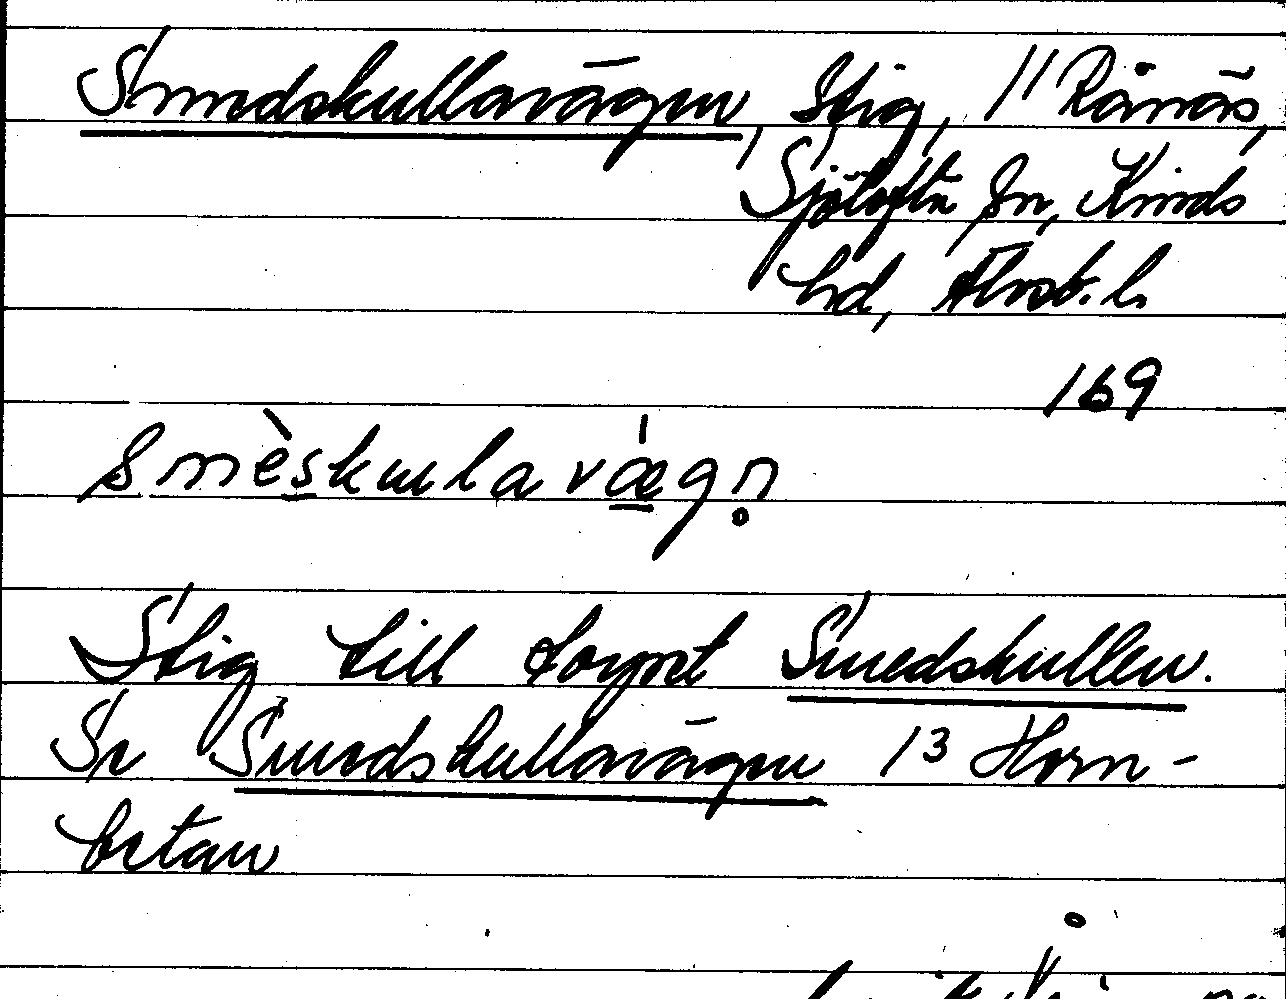 Smedskullavägen, Stig, 11 Rånäs,
Sjötofta sn, Kinds
hd, Älvsb. l.
169
smèskulavǽgn̥
Stig till torpet Smedskullen.
Se Smedskullavägen 13 Horn-
betan